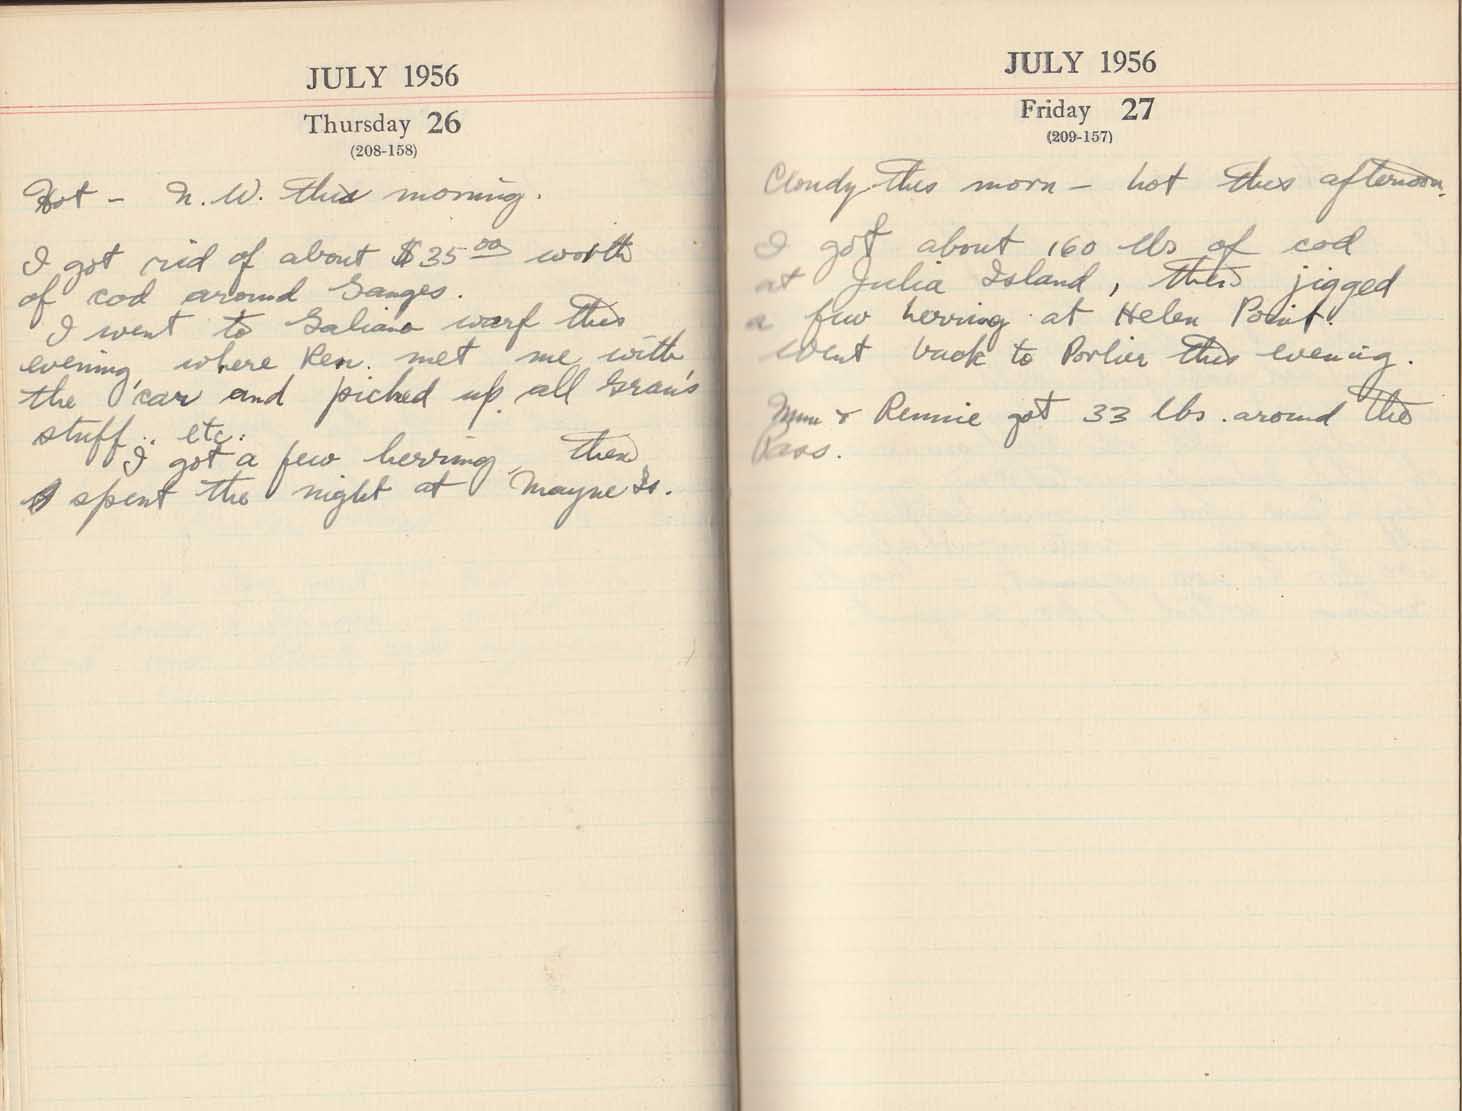 JULY 1956
Thursday 26
(208-158)
Hot - N.W. this morning.
I got rid of about $35.00 worth
of cod around Ganges.
I went to Galiano warf this
evening, where Ken. met me with
the car and picked up all Gran's
stuff.. etc.
I got a few herring, then
spent the night at Mayne Is.
JULY 1956
Friday 27
(209-157)
Cloudy this morn - hot this afternoon.
I got about 160 lbs of cod
at Julia Island, then jigged
a few herring at Helen Point.
Went back to Porlier this evening.
Mum & Rennie got 33 lbs. around the
Pass.